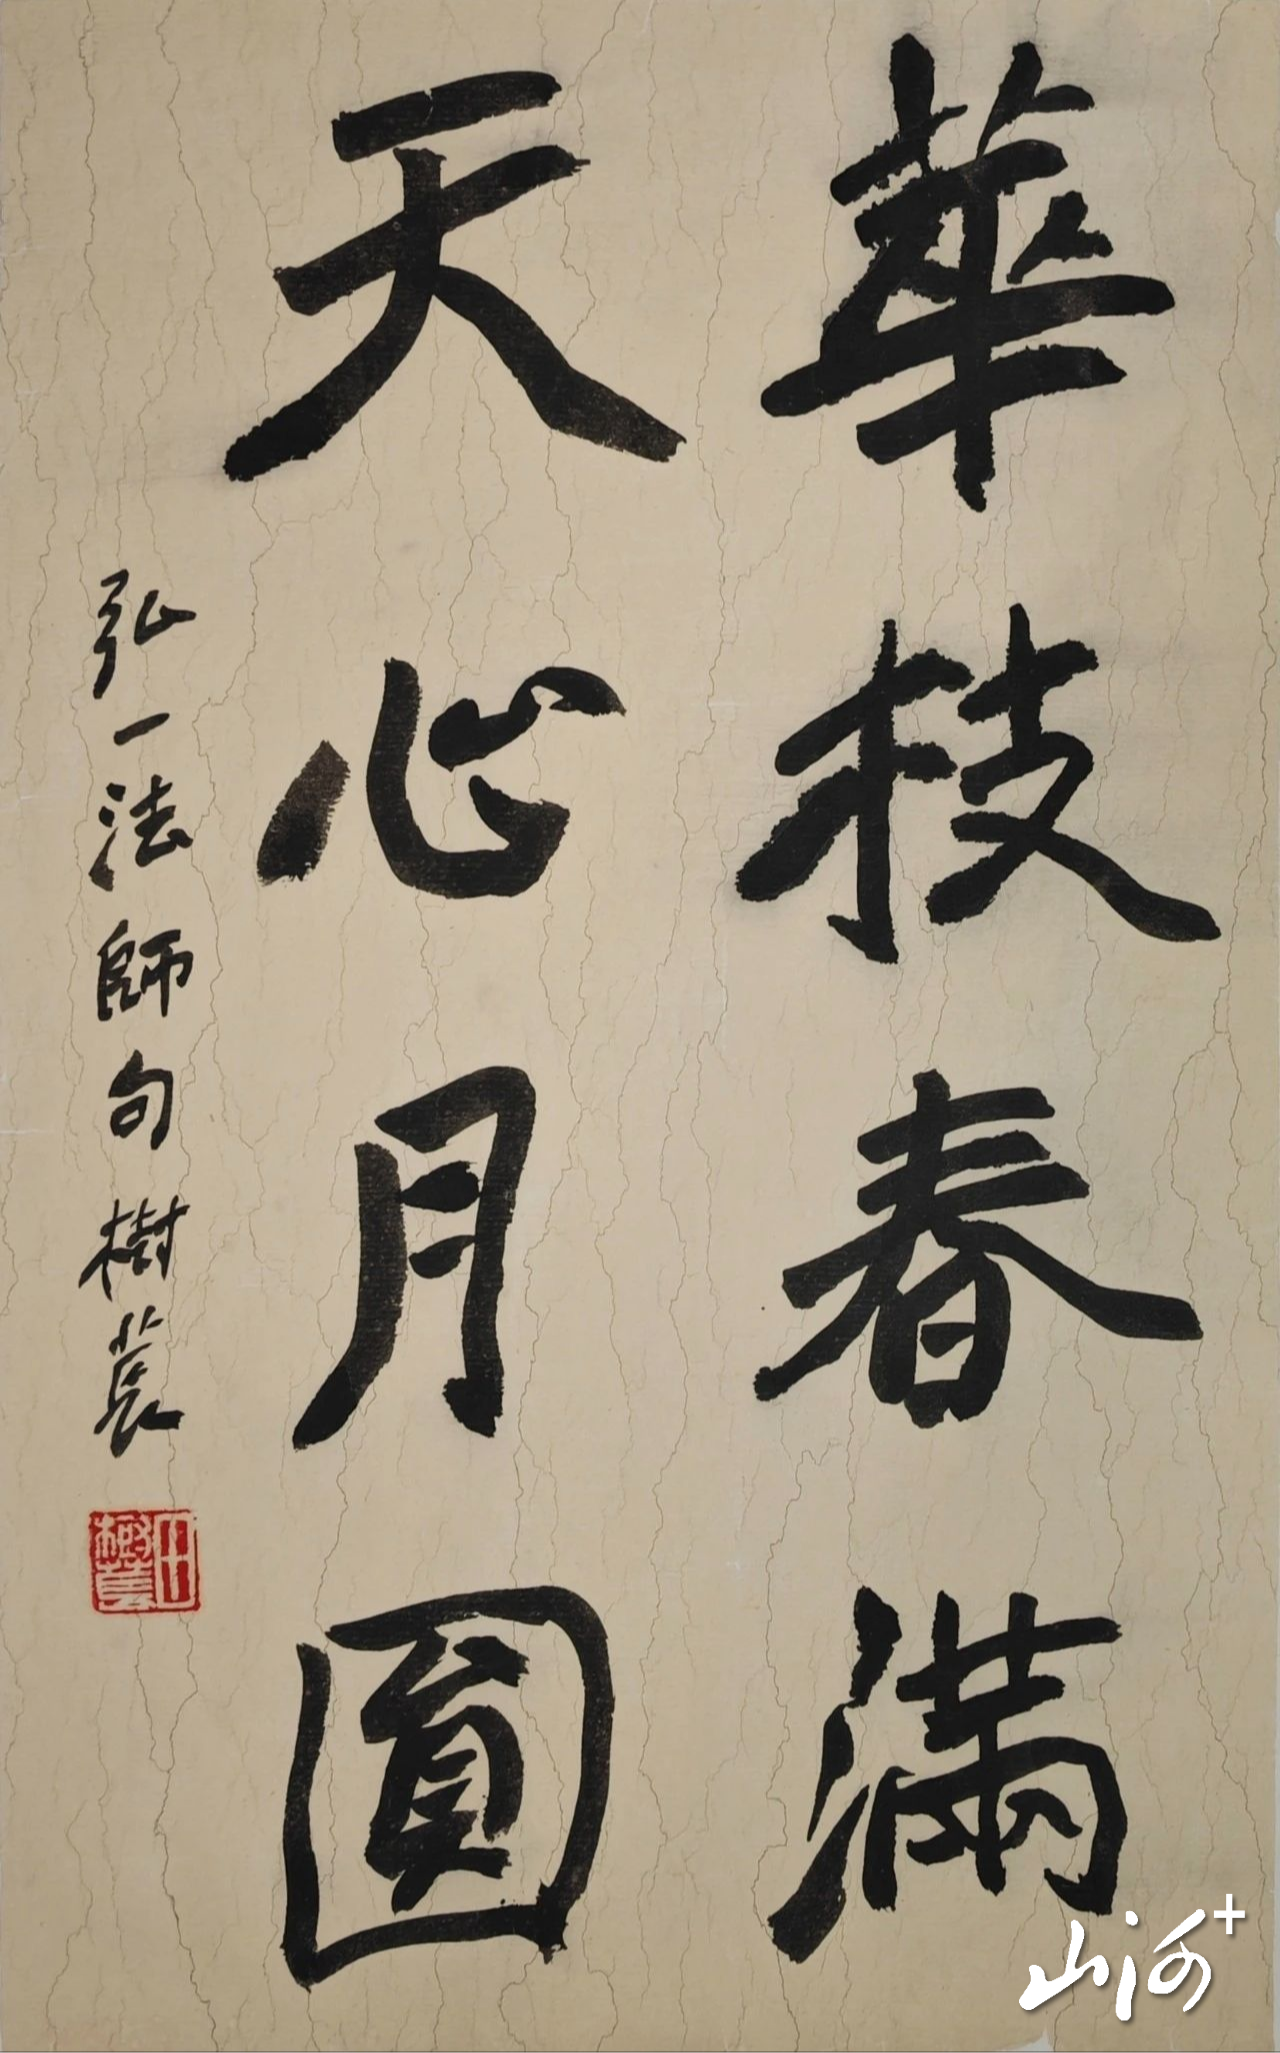 華枝春滿
天心月圓
弘一法師句樹萇
田樹萇
山河+